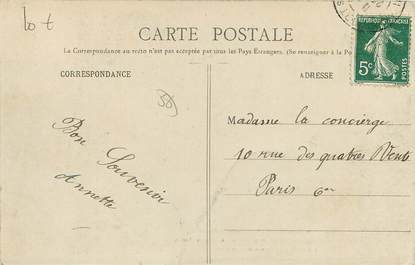 lot
CARTE POSTALE
La Correspondance au recto n'est pas acceptée par tous les Pays Étrangers. (Se renseigner à la Po
CORRESPONDANCE
ADRESSE
REPUBLIQUE FRANÇAISE
5c
POSTES
50
Bon Souvenir
Annette
Madame la concierge
10 rue des quatres Vents
Paris 6e